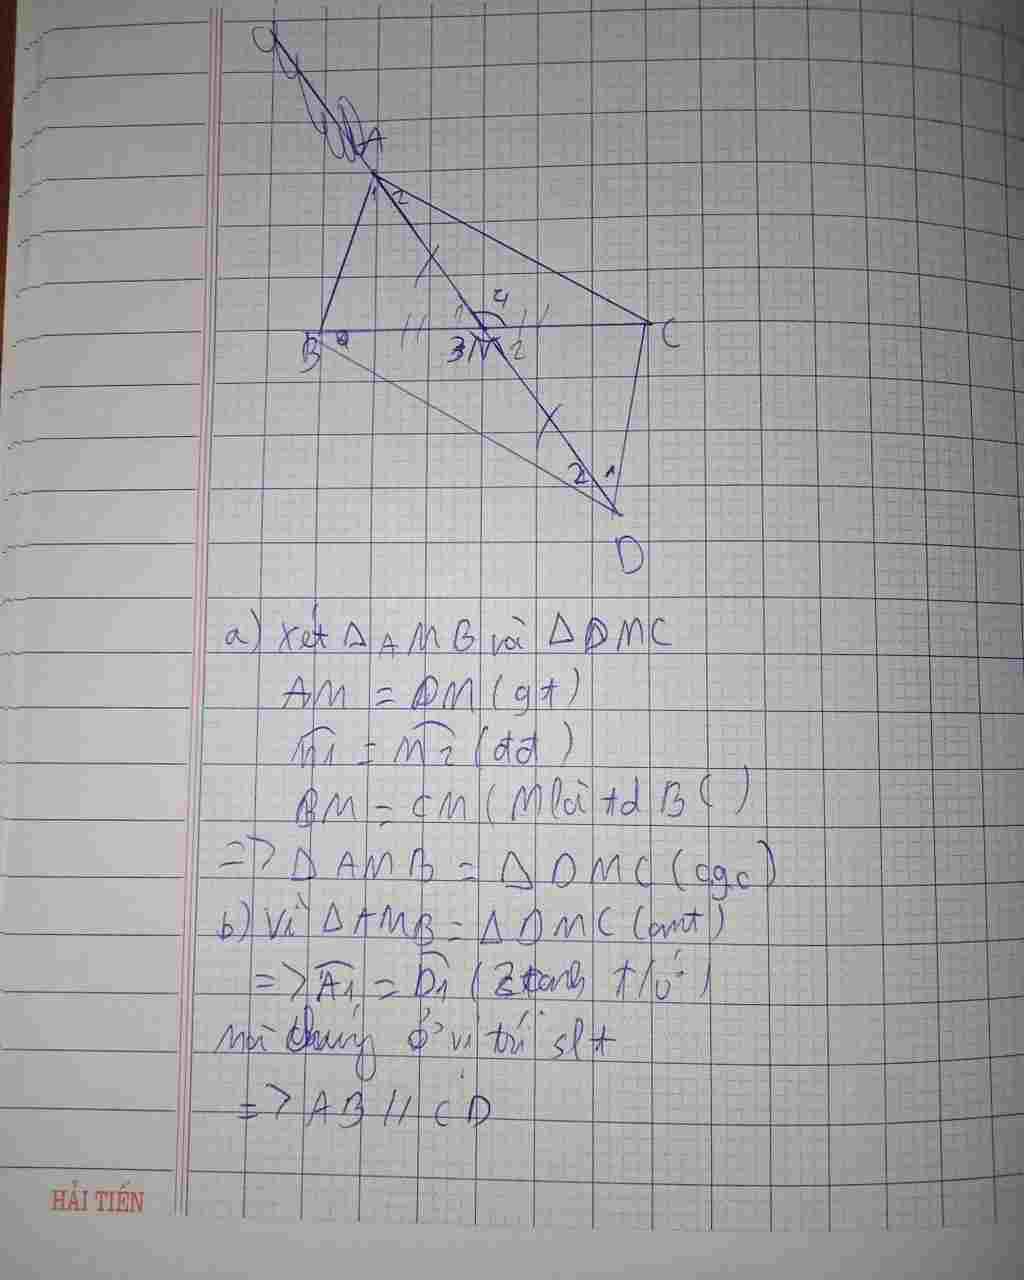 A
1 2
1 4
B 2 3 M 2 C
2 1
D
a) Xét Δ AMB và Δ DMC
AM = DM (gt)
M̂1 = M̂2 (đđ)
BM = CM (M là tđ BC)
=> Δ AMB = Δ DMC (cgc)
b) Vì Δ AMB = Δ DMC (cmt)
=> Â1 = D̂1 (2 t/ứ)
mà chúng ở vị trí slt
=> AB // CD
HẢI TIẾN